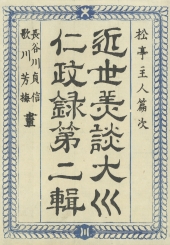 松亭主人篇次
近世美談大川
仁政録第二輯
長谷川貞信
歌川芳梅
畫
川